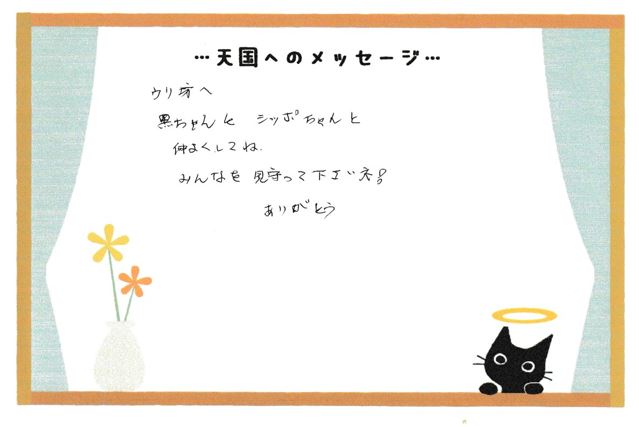 …天国へのメッセージ…
ウリ坊へ
黒ちゃんと シッポちゃんと
仲よくしてね.
みんなを 見守って下さいネ!
ありがとう